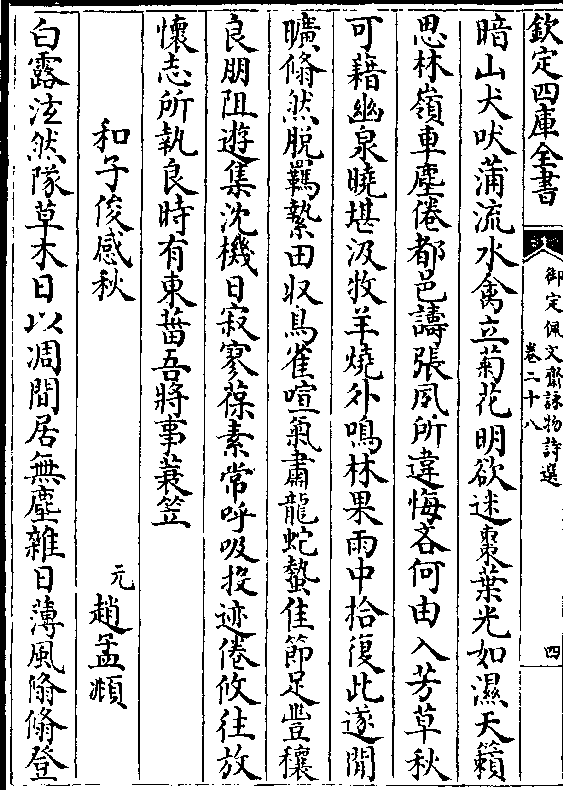 欽定四庫全書
御定佩文齋詠物詩選
卷二十八
四
暗山犬吠蒲流水禽立菊花明欲迷棗葉光如濕天籟
思林嶺車塵倦都邑譸張夙所違悔吝何由入芳草秋
可藉幽泉曉堪汲牧羊燒外鳴林果雨中拾復此遂閒
曠翛然脱羈縶田収鳥雀喧氣肅龍蛇蟄佳節足豐穰
良朋阻遊集沈機日寂寥葆素常呼吸投迹倦攸往放
懷志所執良時有東菑吾將事蓑笠
和子俊感秋
元趙孟頫
白露泫然隊草木日以凋間居無塵雜日薄風翛翛登